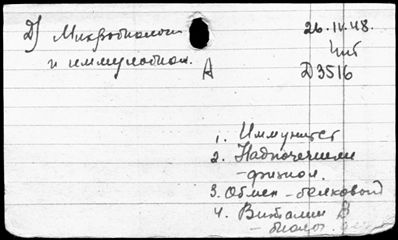 D) Микробиологи
и иммунобиол.
А
26.IV.48.
Чит
D3516
1. Иммунитет
2. Надпочечники
-физиол.
3. Обмен - белковой
4. Витамин В
- биолог.